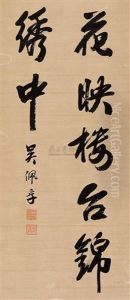 花映楼台錦
綉中
吴佩孚